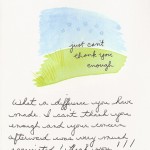 just can't
thank you
enough
What a difference you have
made. I can't thank you
enough and your concern
afterward was very much
appreciated. Thank you!!!